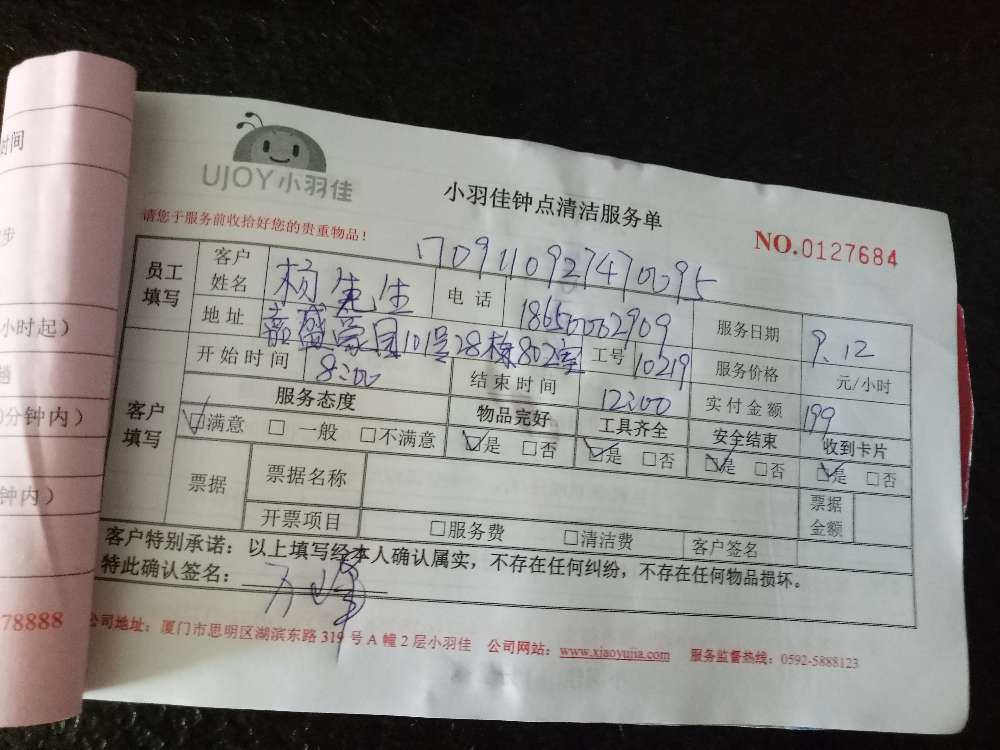 时间
小时起）
分钟内）
钟内）
78888
UJOY小羽佳
小羽佳钟点清洁服务单
请您于服务前收拾好您的贵重物品！
NO.0127684
1709110927470095
员工填写 客户姓名 杨先生 电话 18650002909 服务日期 9.12
地址 嘉盛豪园101号28栋802室 工号 10219 服务价格 元/小时
开始时间 8:00 结束时间 12:00 实付金额 199
客户填写 服务态度 物品完好 工具齐全 安全结束 收到卡片
☑满意 □一般 □不满意 ☑是 □否 ☑是 □否 ☑是 □否 ☑是 □否
票据 票据名称 票据金额
开票项目 □服务费 □清洁费 客户签名
客户特别承诺：以上填写经本人确认属实，不存在任何纠纷，不存在任何物品损坏。
特此确认签名：
公司地址：厦门市思明区湖滨东路319号A幢2层小羽佳 公司网站：www.xiaoyujia.com 服务监督热线：0592-5888123